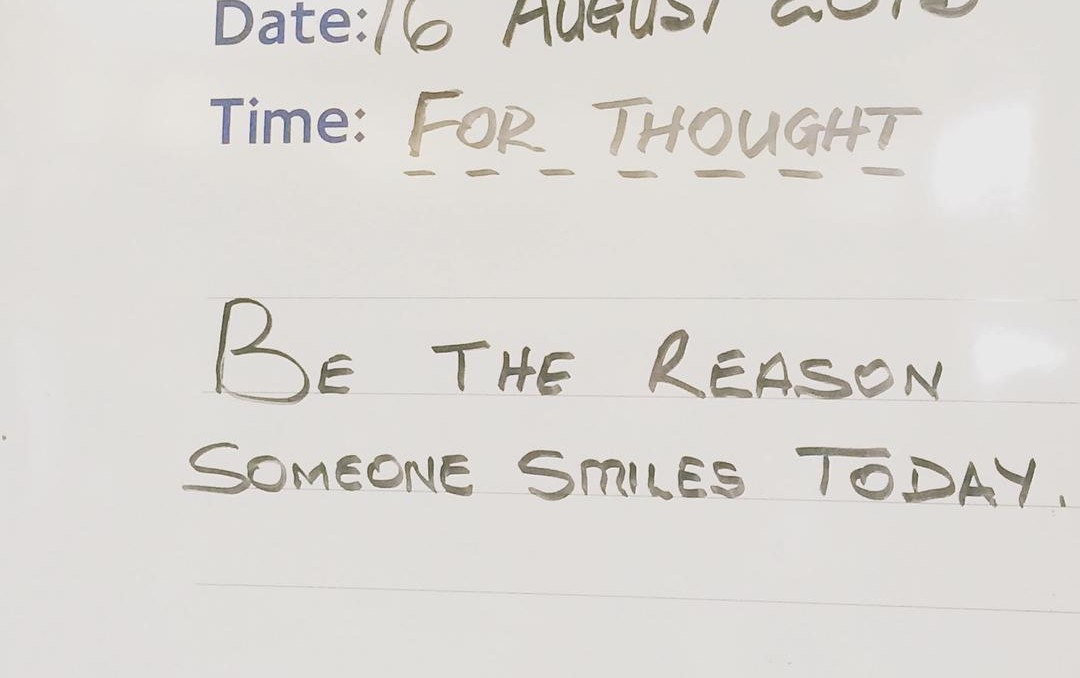 Date: 16 AUGUST
Time: FOR THOUGHT
BE THE REASON
SOMEONE SMILES TODAY.